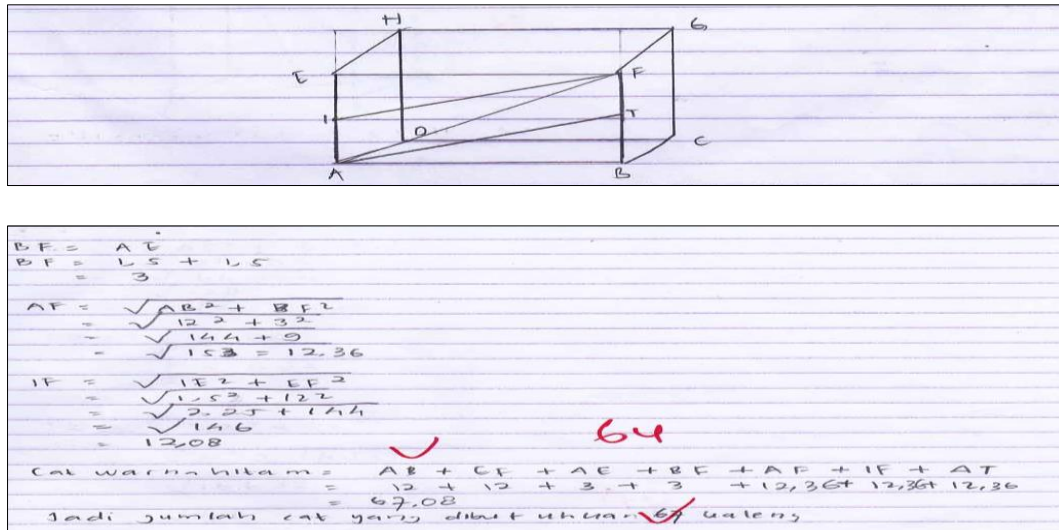 H G
E F
I T
D C
A B
BF = AE
BF = 1,5 + 1,5
= 3
AF = √AB² + BF²
= √12² + 3²
= √144 + 9
= √153 = 12.36
IF = √IE² + EF²
= √1,5² + 12²
= √2.25 + 144
= √146
= 12,08
64
Cat warna hitam = AB + EF + AE + BF + AF + IF + AT
= 12 + 12 + 3 + 3 + 12,36 + 12,36 + 12,36
= 67,08
Jadi jumlah cat yang 67 kaleng